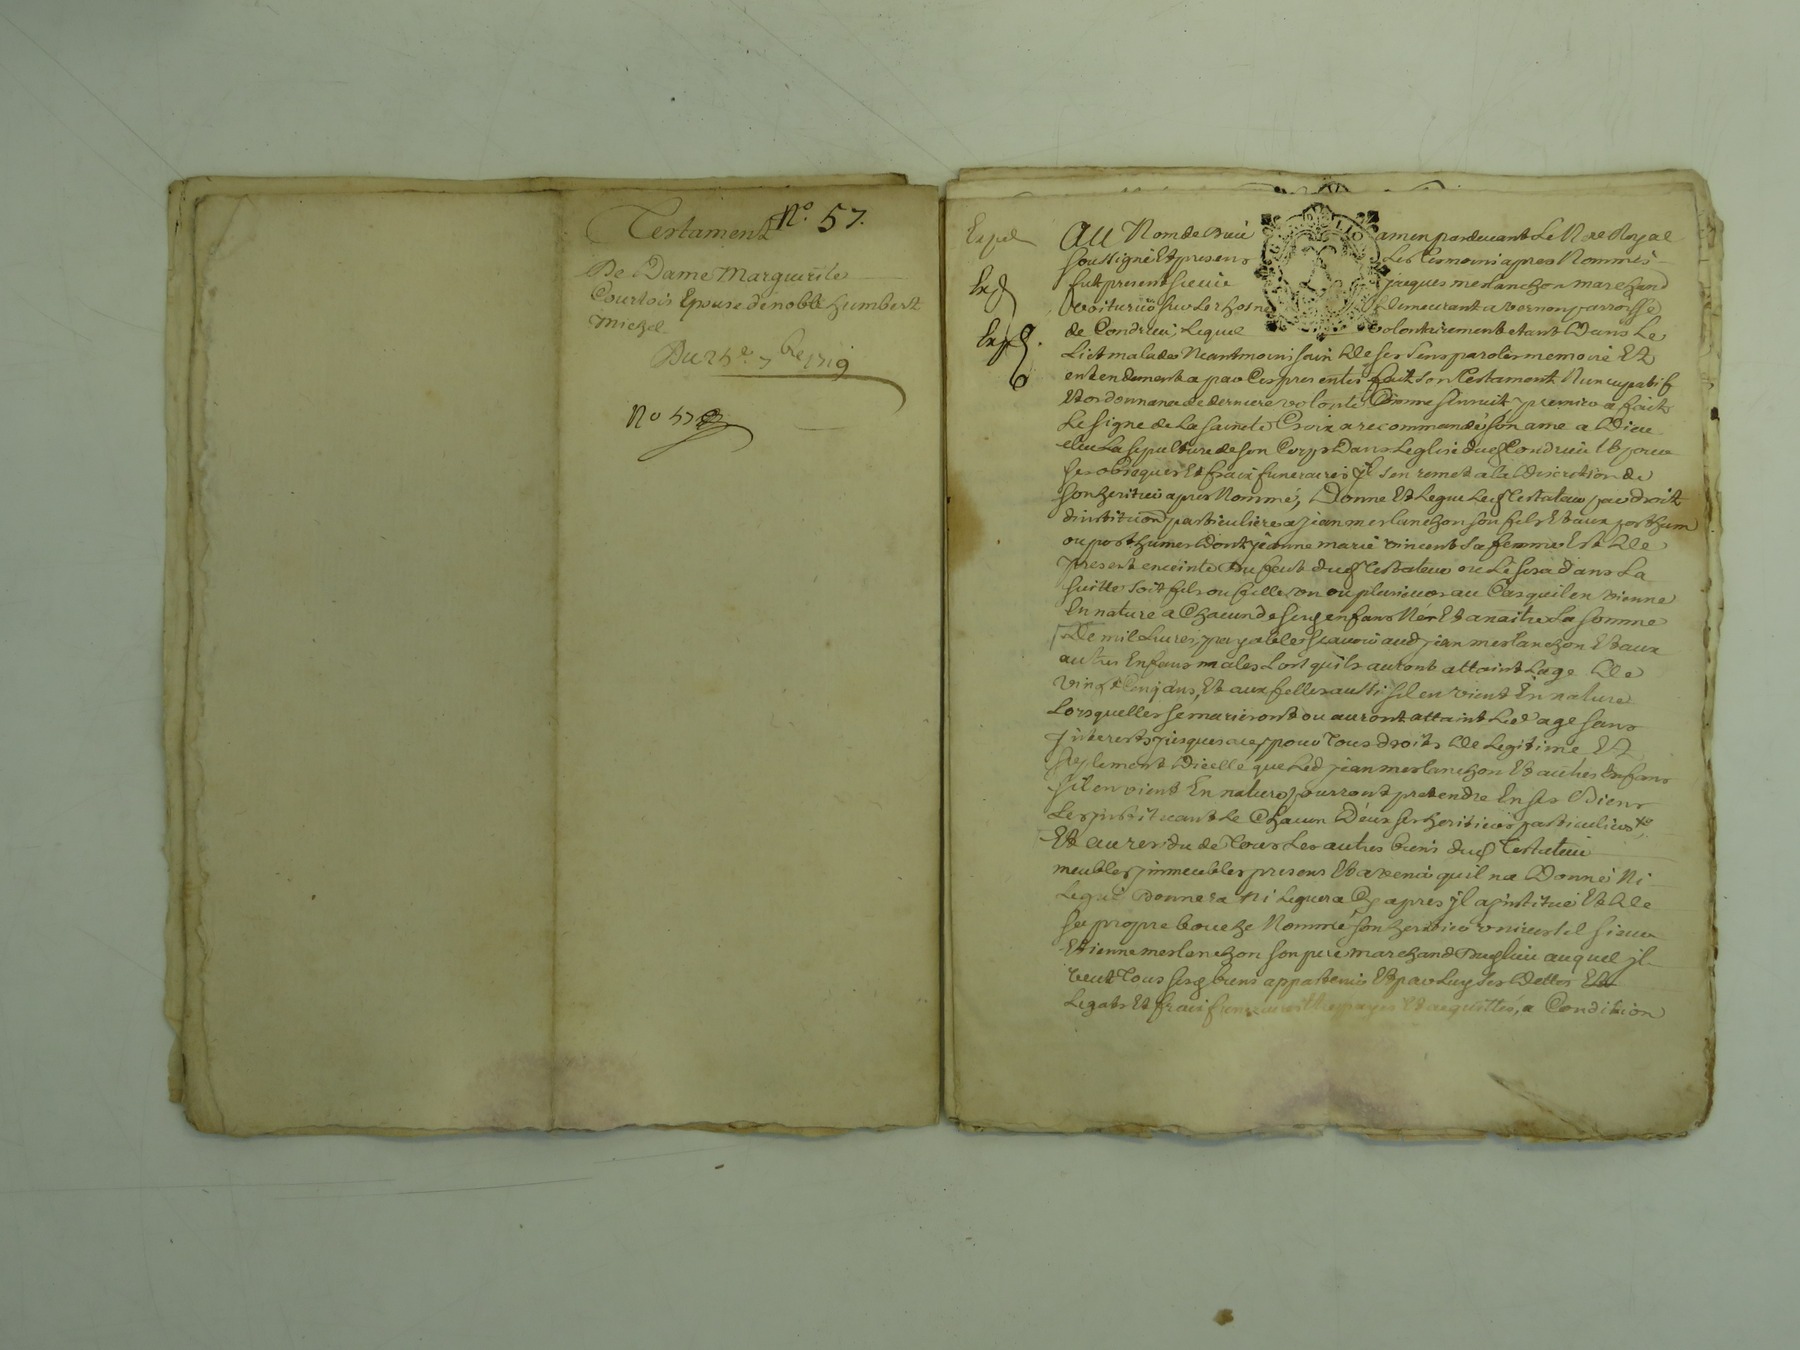 Testament N.º 57.
De Dame Marguerite
Courtois Epouse de noble humbert
Michel
Du 25e. 7bre 1719
No 57
Exped
Exp
Exp
Au Nom de Dieu amen pardevant Le Nre Royal
soussigné Et presens Les Tesmoins apres Nommés
fut present sieur jacques merlanchon marchand
voiturier sur Le rhosne demeurant a vernon parroisse
de Condrieu, Lequel volontairement etant Dans Le
Lict malade Neantmoins sain De ses sens parole memoire Et
entendement a par Ces presentes fait son Testament Nuncupatif
Et ordonnance de derniere volonté Comme sensuit, premier a fait
Le signe de La saincte Croix a recommandé son ame a Dieu
elleu La sepulture de son Corps Dans Leglise dud Condrieu Et pour
ses obseques Et fraix funeraires jl sen remet a la Discretion de
son heritier apres Nommé, Donne Et Legue Led Testateur par droit
dinstitution particuliere a jean merlanchon son fils Et aux posthume
ou posthumes Dont jeanne marie vincent sa femme Est De
present enceinte Du fait dud Testateur ou Le sera dans La
suitte soit fils ou fille un ou plusieurs au Cas quil en vienne
En nature a Chacun de sesd enfans Nés Et a naitre La somme
De mil Livres, payables scavoir aud jean merlanchon Et aux
autres Enfans males Lors quils auront attaint Lage De
vingt Cinq ans, Et aux filles aussi sil en vient En nature
Lorsquelles se marieront ou auront attaint Led age sans
jnterests jusques a ce, pour Tous droits De Legitime Et
suplement Dicelle que Led jean merlanchon Et autres Enfans
sil en vient En nature pourront pretendre En ses Biens
Les jnstituant Le Chacun Deux ses heritiers particuliers
Et au residu de Tous Les autres biens dud Testateur
meubles jmmeubles presens Et avenir quil na Donné Ni
Legué Donnera Ni Leguera Cy apres jl a jnstitué Et De
sa propre bouche Nommé son heritier universel sieur
Etienne merlanchon son pere marchand Dud Lieu auquel jl
veut Tous sesd biens appartenir Et par Luy ses Dettes Et
Legats Et fraix funeraires Etre payés Et acquittés, a Condition